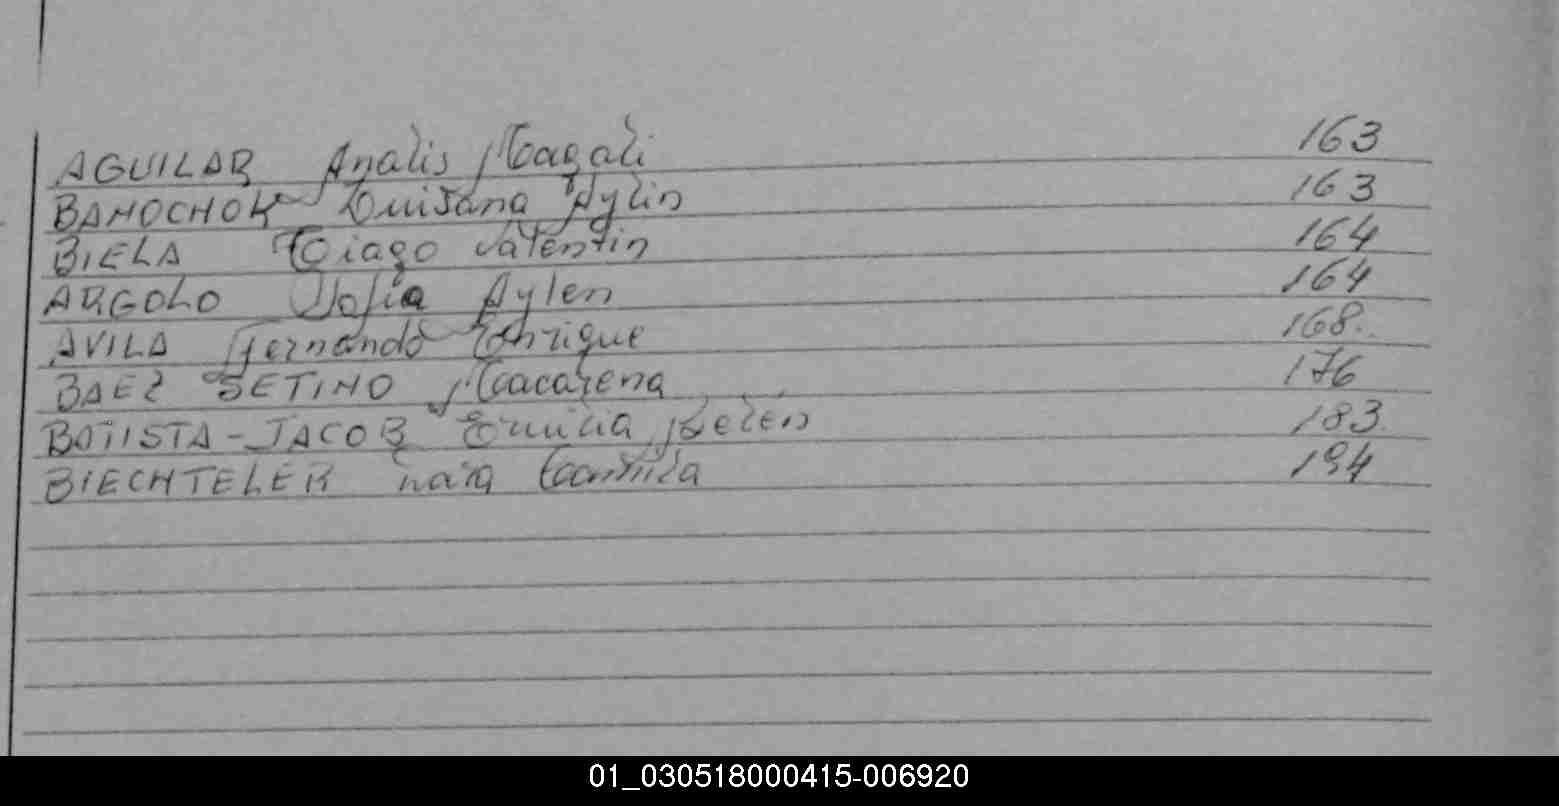 AGUILAR Analis Magali 163
BANOCHOK Luisana Aylin 163
BIELA Tiago Valentin 164
ARGOLO Sofia Aylen 164
AVILA Fernando Enrique 168.
BAEZ SETINO Macarena 176
BATISTA-JACOB Emilia Belén 183.
BIECHTELER Naira Camila 194
01_030518000415-006920